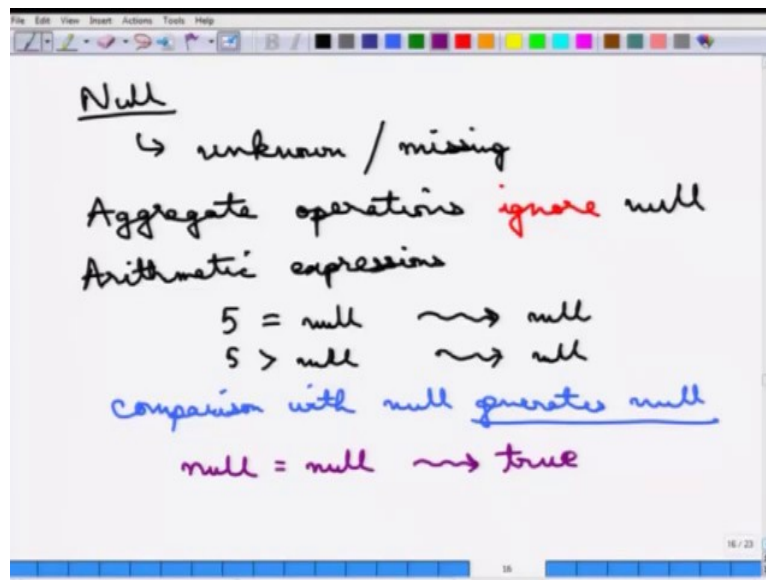 File Edit View Insert Actions Tools Help
Null
↳ unknown / missing
Aggregate operations ignore null
Arithmetic expressions
5 = null ⇝ null
5 > null ⇝ null
comparison with null generates null
null = null ⇝ true
16 / 23
16